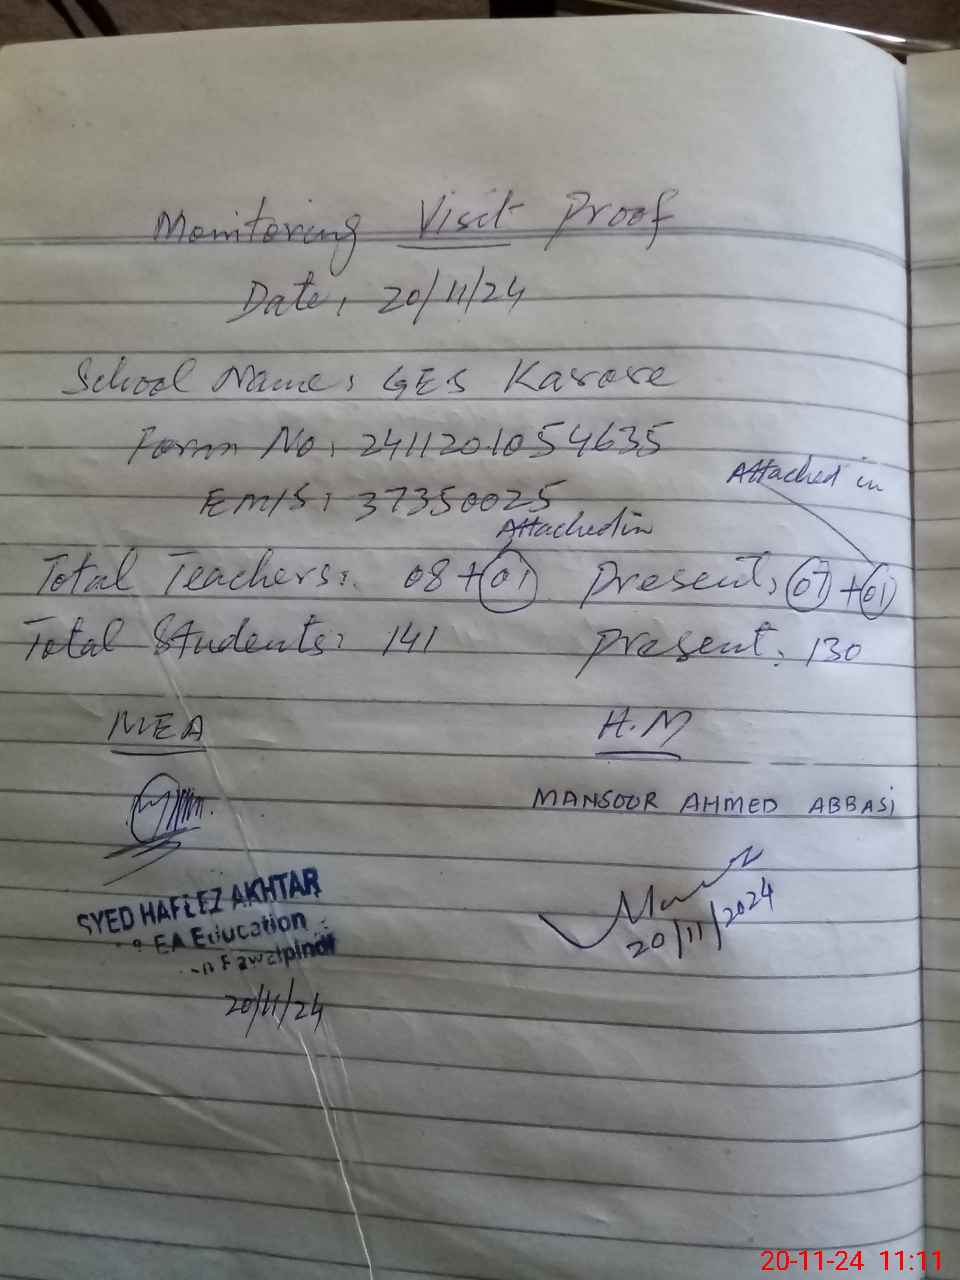 Monitoring Visit Proof
Date: 20/11/24
School Name: GES Karore
Form No: 2411201054635
Attached in
EMIS: 37350025
Attached in
Total Teachers: 08+01 Present: 07+01
Total Students: 141 Present: 130
MEA H.M
MANSOOR AHMED ABBASI
SYED HAFEEZ AKHTAR
EA Education
Rawalpindi
20/11/2024
20/11/24
20-11-24 11:11